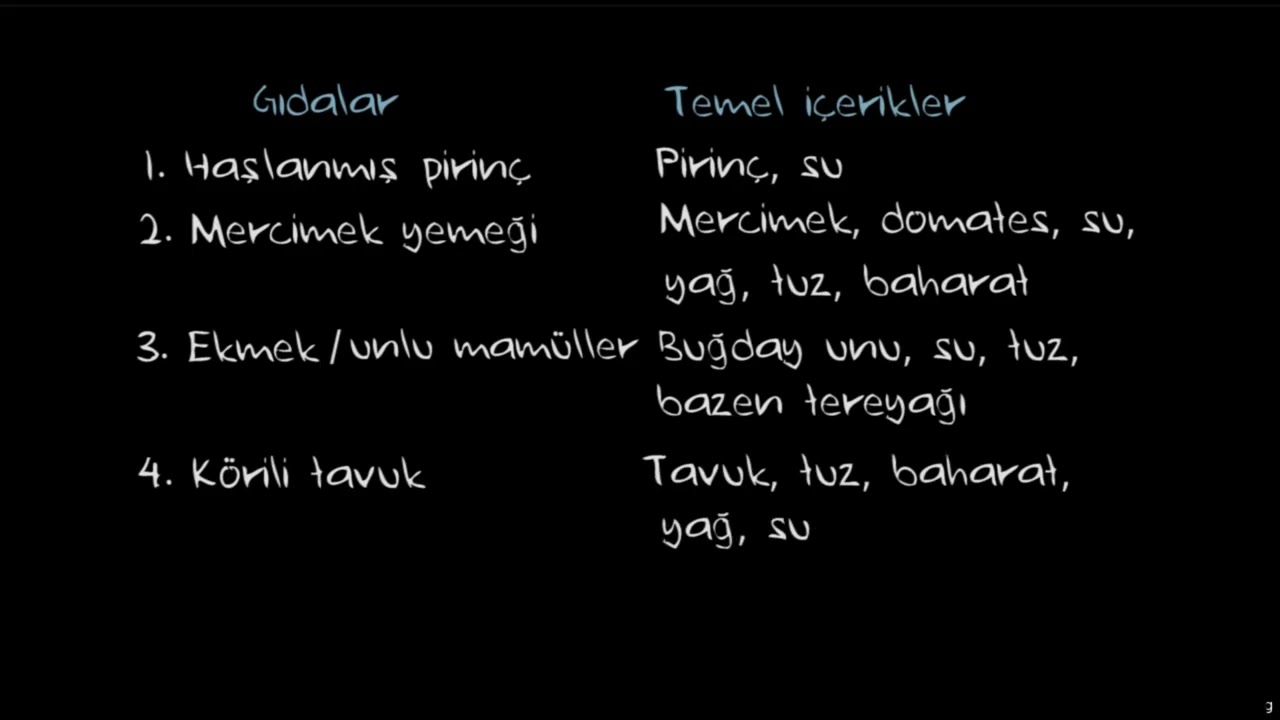 Gıdalar Temel içerikler
1. Haşlanmış pirinç Pirinç, su
2. Mercimek yemeği Mercimek, domates, su,
yağ, tuz, baharat
3. Ekmek/unlu mamüller Buğday unu, su, tuz,
bazen tereyağı
4. Körili tavuk Tavuk, tuz, baharat,
yağ, su
g